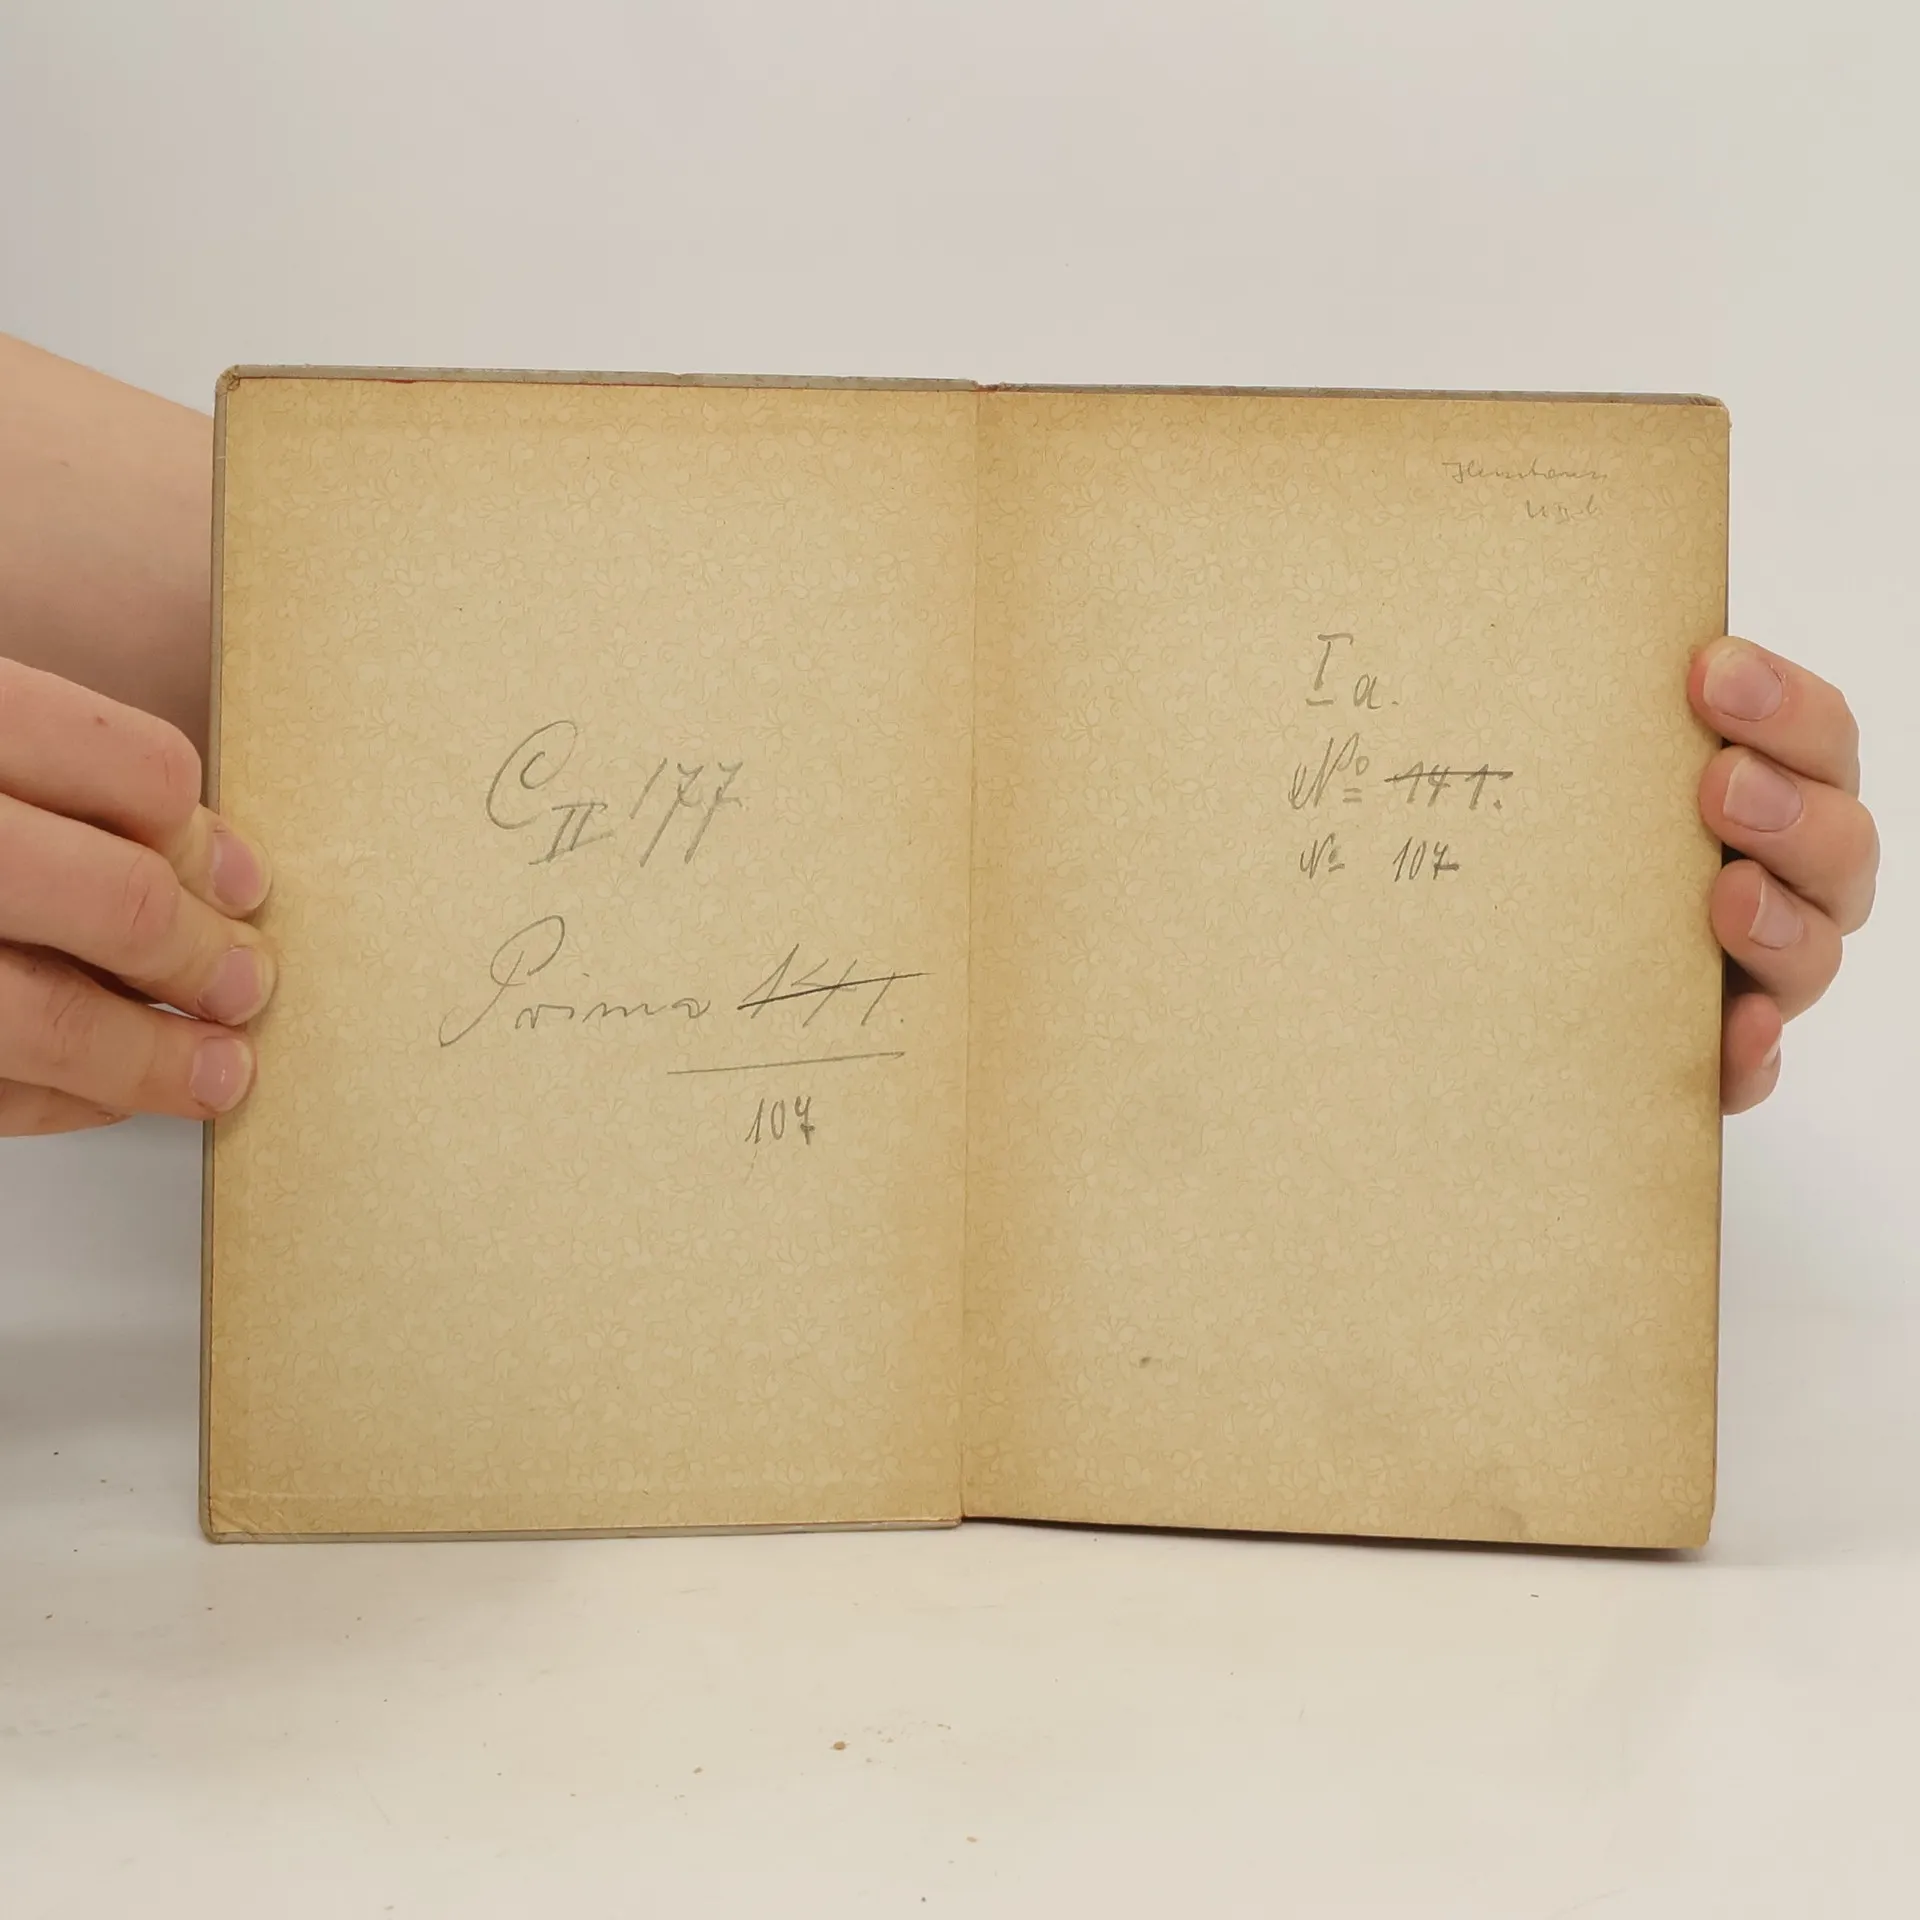 C II 177
Prima 141.
107
I a.
№ 141.
№ 107